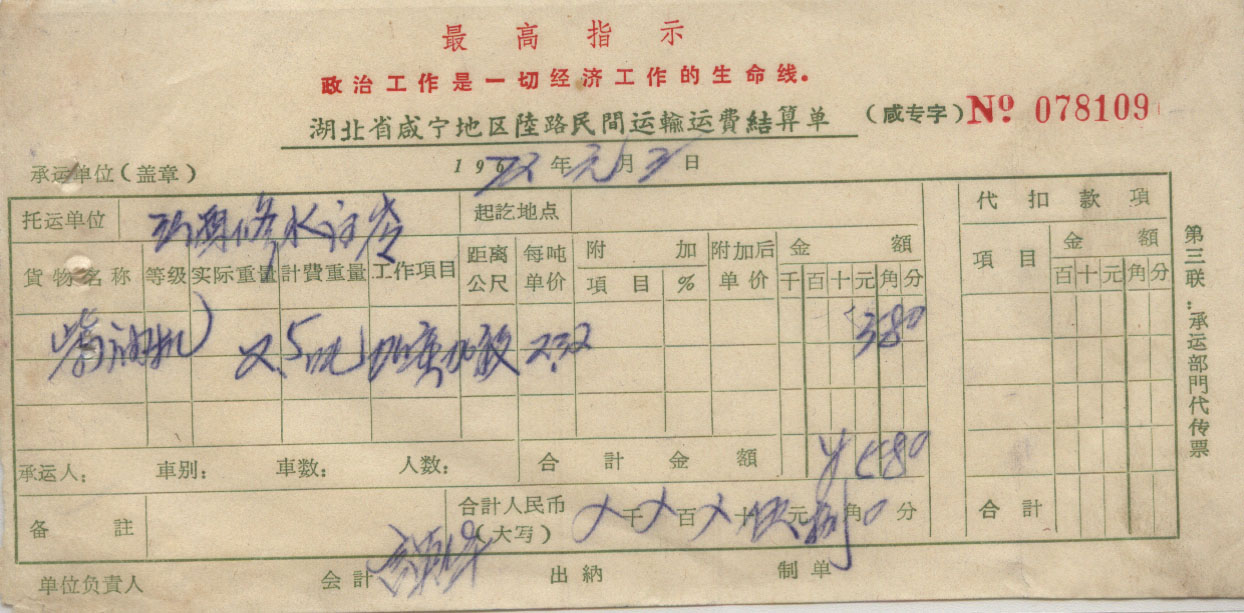 最高指示
政治工作是一切经济工作的生命线。
湖北省咸宁地区陸路民間运輸运費結算单 (咸专字) Nº 078109
承运单位(盖章) 196 年元月 日
托运单位 起訖地点 代扣款項
貨物名称 等级 实际重量 計費重量 工作項目 距离公尺 每吨单价 附加項目 % 附加后单价 金額 千百十元角分 項目 金額 百十元角分
柴油机 2.5吨 2.32 580
承运人: 車别: 車数: 人数: 合計金額 ¥580
备註 合計人民币(大写) 千 百 十伍元捌角0分 合計
单位负責人 会計 出納 制单
第三联:承运部門代传票